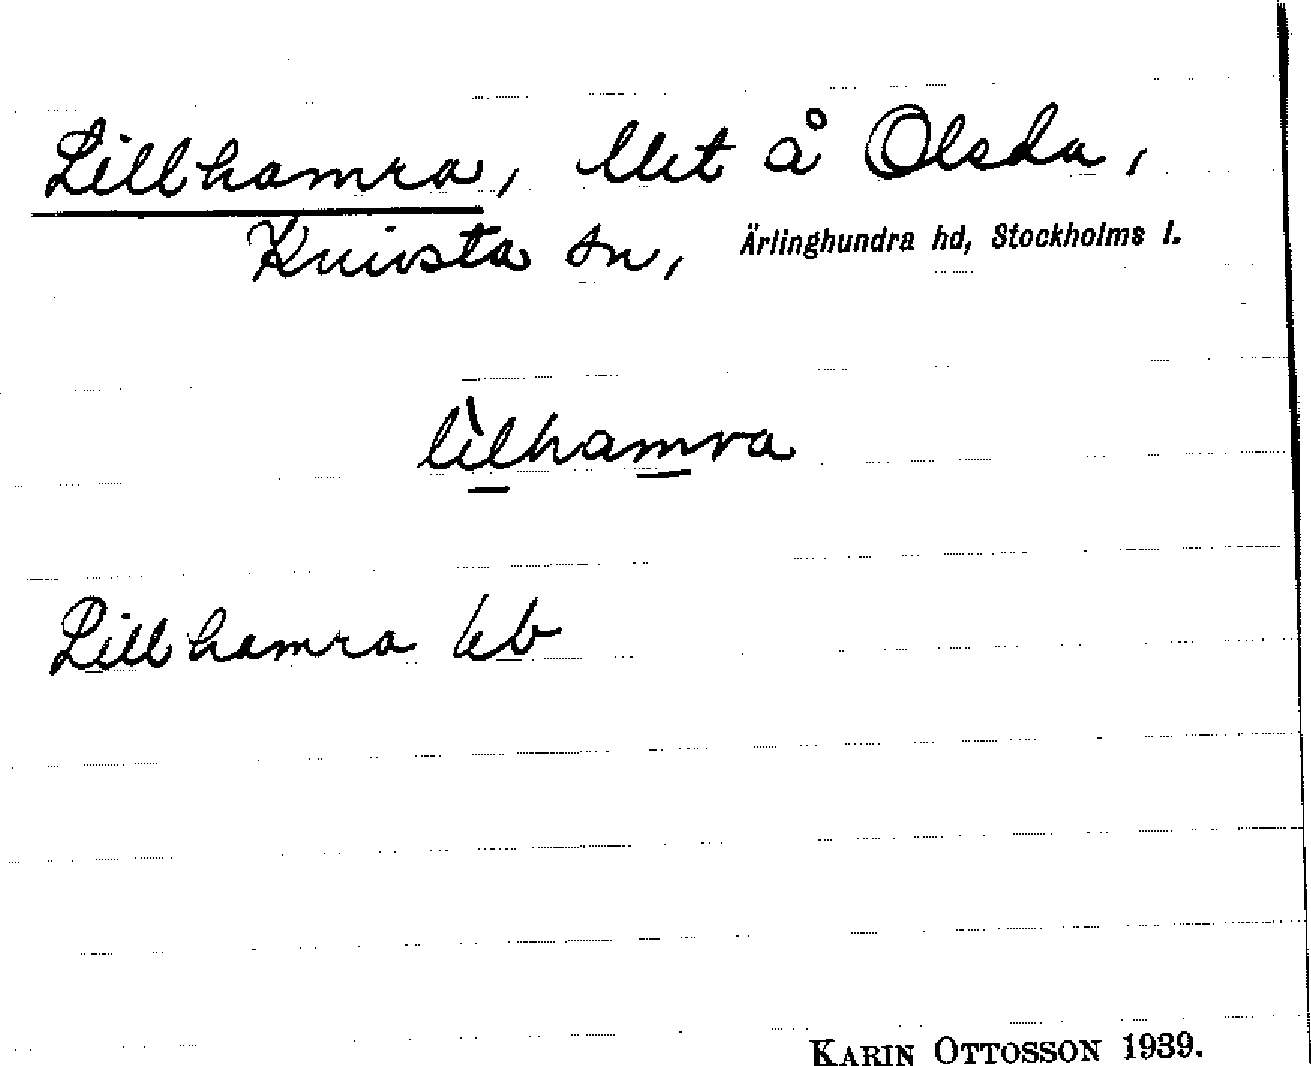 Lillhamra, lllet å Olsda,
Knivsta sn, Ärlinghundra hd, Stockholms l.
lìlhamra
Lillhamra kb
KARIN OTTOSSON 1939.